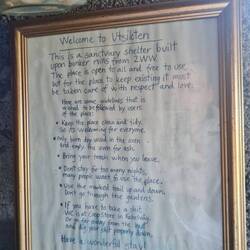 Welcome to Utsikten
This is a sanctuary shelter built
upon bunker ruins from 2WW.
The place is open to all and free to use
but for the place to keep existing it must
be taken care of with respect and love.
Here are some guidelines that is
asked to be followed by users
of the place:
• Keep the place clean and tidy.
So its welcoming for everyone.
• Only burn dry wood in the oven
And empty the oven for ash.
• Bring your trash when you leave.
• Dont stay for too many nights,
many people want to use the place.
• Use the marked trail up and down.
Dont go through the gardens.
• If you have to take a shit
WC is at Coop Store in
Or go far away from the
and dig your shit properly down.
Have a wonderful stay!